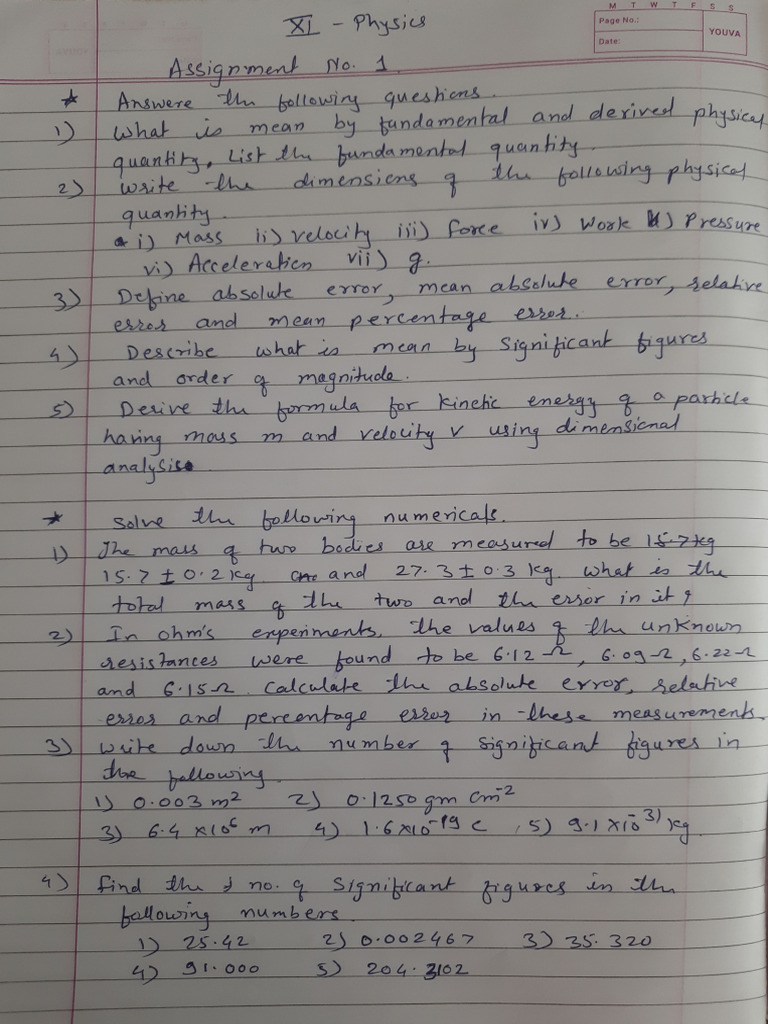 M T W T F S S
XI - Physics
Page No.:
YOUVA
Date:
Assignment No. 1
* Answere the following questions.
1) What is mean by fundamental and derived physical
quantity. List the fundamental quantity.
2) Write the dimensions of the following physical
quantity.
i) Mass ii) velocity iii) Force iv) Work v) Pressure
vi) Acceleration vii) g.
3) Define absolute error, mean absolute error, relative
error and mean percentage error.
4) Describe what is mean by significant figures
and order of magnitude.
5) Derive the formula for kinetic energy of a particle
having mass m and velocity v using dimensional
analysis.
* Solve the following numericals.
1) The mass of two bodies are measured to be 15.7 kg
15.7 ± 0.2 kg and 27.3 ± 0.3 kg. what is the
total mass of the two and the error in it ?
2) In ohm's experiments, the values of the unknown
resistances were found to be 6.12 Ω, 6.09 Ω, 6.22 Ω
and 6.15 Ω. Calculate the absolute error, relative
error and percentage error in these measurements.
3) Write down the number of significant figures in
the following.
1) 0.003 m² 2) 0.1250 gm cm⁻²
3) 6.4 × 10⁶ m 4) 1.6 × 10⁻¹⁹ C, 5) 9.1 × 10⁻³¹ kg.
4) Find the no. of significant figures in the
following numbers.
1) 25.42 2) 0.002467 3) 35.320
4) 91.000 5) 204.3102